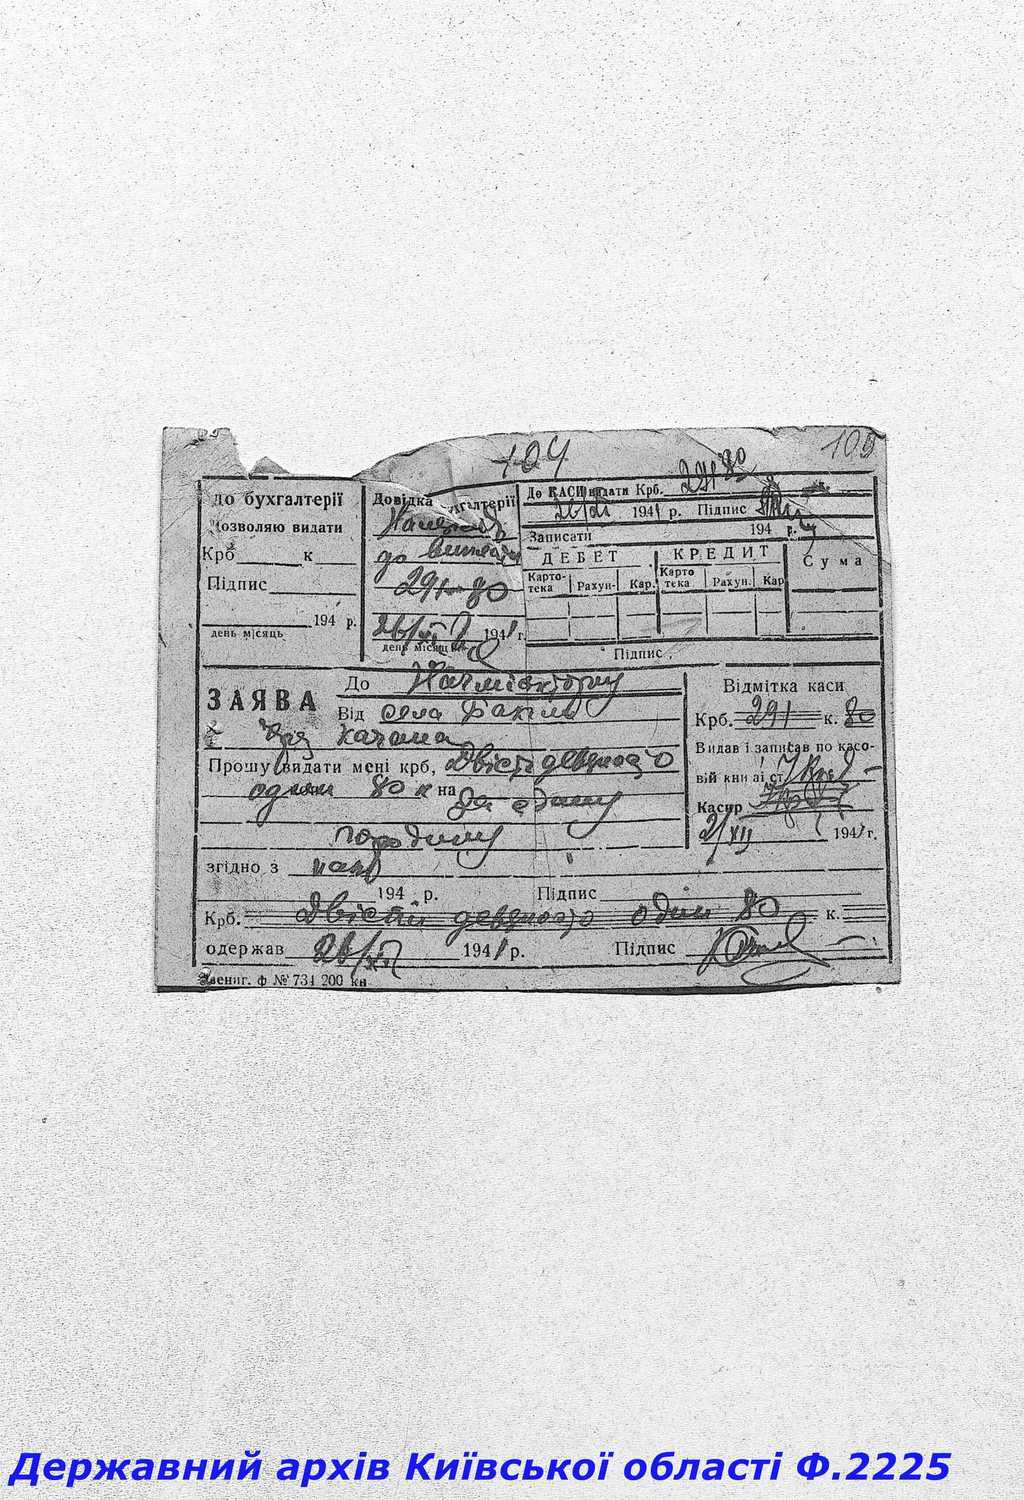 104
105
до бухгалтерії
Дозволяю видати
Крб к
Підпис
194 р.
день місяць
Довідка бухгалтерії
Належить
до виплати
291-80
26/XI 1941 г.
день місяць
До КАСИ видати Крб. 291 80
26/XI 1941 р. Підпис
Записати 194 р.
ДЕБЕТ КРЕДИТ Сума
Карто-тека Рахун. Кар. Карто тека Рахун. Кар
Підпис
ЗАЯВА
До
Від села
Прошу видати мені крб. Двісті девяносто
один 80 к на
згідно з
194 р. Підпис
Крб. Двісті девяносто один 80 к.
одержав 26/XI 1941 р. Підпис
Відмітка каси
Крб. 291 к. 80
Видав і записав по касо-
вій книзі ст.
Касир
2/XII 1941 г.
Звениг. ф № 734 200 кн
Державний архів Київської області Ф.2225